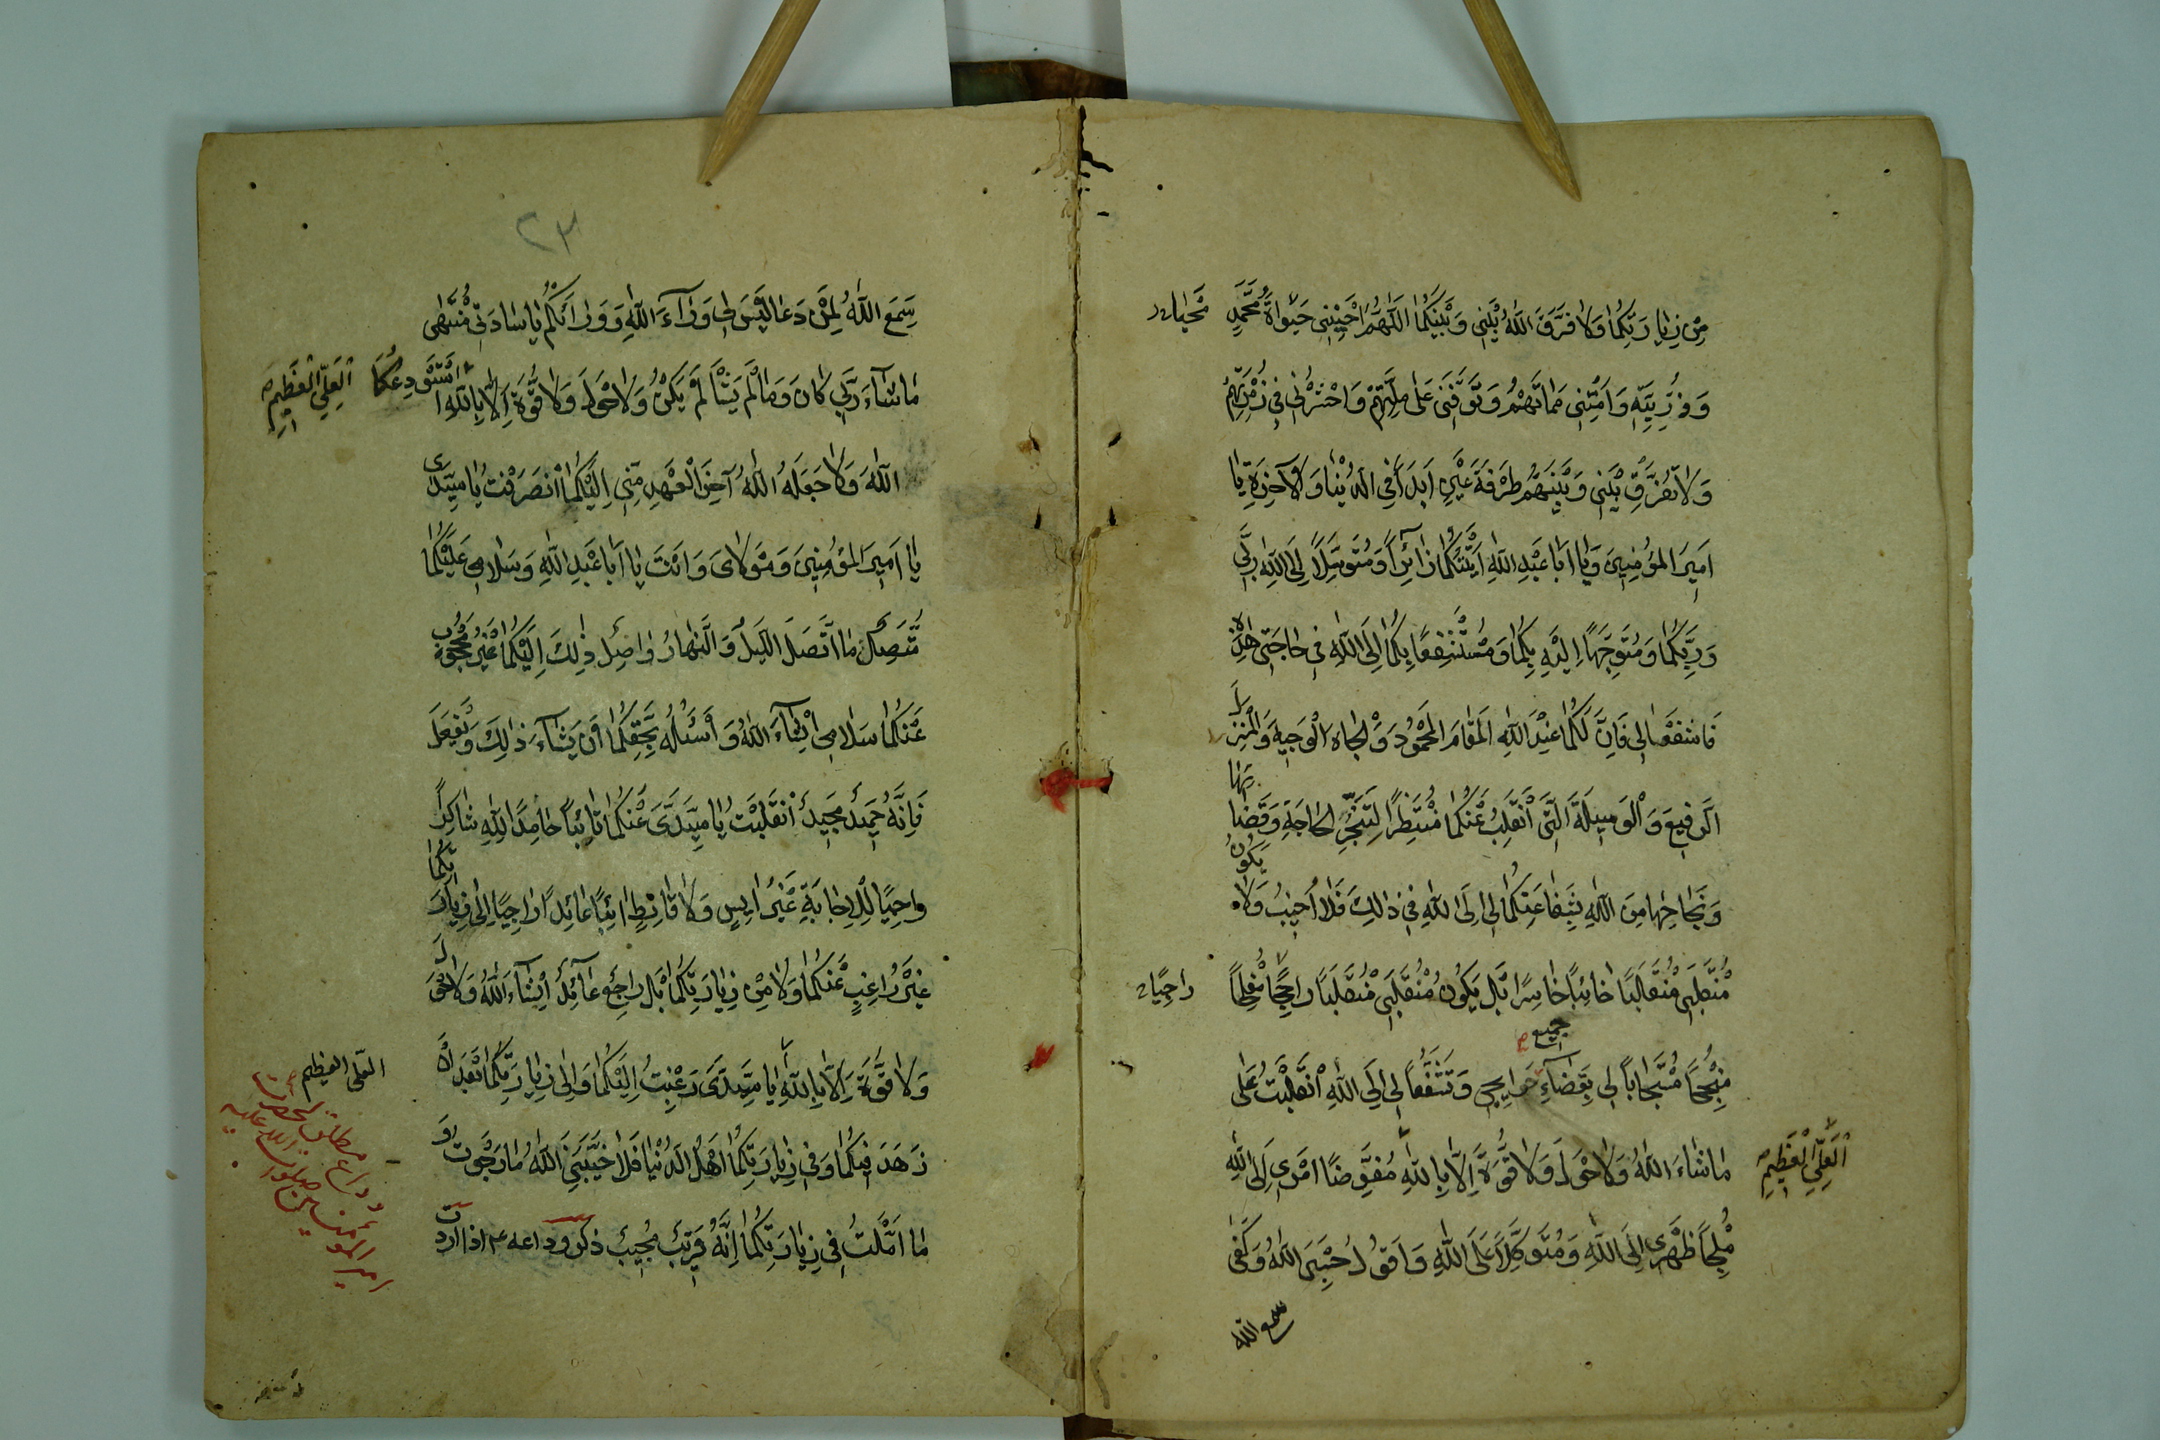 مِنْ زِيارَتِكُما وَلا فَرَّقَ اللّٰهُ بَيْنِي وَبَيْنَكُما اَللّٰهُمَّ اَحْيِنِي حَيٰوةَ مُحَمَّدٍ
مَحْيا
وَذُرِّيَّتِهِ وَاَمِتْنِي مَماتَهُمْ وَتَوَفَّنِي عَلٰى مِلَّتِهِمْ وَاحْشُرْنِي فِي زُمْرَتِهِمْ
وَلا تُفَرِّقْ بَيْنِي وَبَيْنَهُمْ طَرْفَةَ عَيْنٍ اَبَدًا فِي الدُّنْيا وَالْآخِرَةِ يا
اَمِيرَ الْمُؤْمِنِينَ وَيا اَبا عَبْدِ اللّٰهِ اَتَيْتُكُما زائِرًا وَمُتَوَسِّلًا اِلَى اللّٰهِ رَبِّي
وَرَبِّكُما وَمُتَوَجِّهًا اِلَيْهِ بِكُما وَمُسْتَشْفِعًا بِكُما اِلَى اللّٰهِ فِي حاجَتِي هٰذِهِ
فَاشْفَعا لِي فَاِنَّ لَكُما عِنْدَ اللّٰهِ الْمَقامَ الْمَحْمُودَ وَالْجاهَ الْوَجِيهَ وَالْمَنْزِلَ
الرَّفِيعَ وَالْوَسِيلَةَ اِنِّي اَنْقَلِبُ عَنْكُما مُنْتَظِرًا لِتَنَجُّزِ الْحاجَةِ وَقَضائِها
وَنَجاحِها مِنَ اللّٰهِ بِشَفاعَتِكُما لِي اِلَى اللّٰهِ فِي ذٰلِكَ فَلا اَخِيبُ وَلا يَكُونُ
مُنْقَلَبِي مُنْقَلَبًا خائِبًا خاسِرًا بَلْ يَكُونُ مُنْقَلَبِي مُنْقَلَبًا راجِحًا مُفْلِحًا
راجِيًا
مُنْجِحًا مُسْتَجابًا لِي بِقَضاءِ جميع حَوائِجِي وَتَشَفُّعًا لِي اِلَى اللّٰهِ انْقَلَبْتُ عَلٰى
ما شاءَ اللّٰهُ وَلا حَوْلَ وَلا قُوَّةَ اِلّا بِاللّٰهِ مُفَوِّضًا اَمْرِي اِلَى اللّٰهِ
الْعَلِيِّ الْعَظِيمِ
مُلْجِأً ظَهْرِي اِلَى اللّٰهِ وَمُتَوَكِّلًا عَلَى اللّٰهِ وَاَقُولُ حَسْبِيَ اللّٰهُ وَكَفٰى
سمع الله
٢٣
سَمِعَ اللّٰهُ لِمَنْ دَعا لَيْسَ لِي وَرآءَ اللّٰهِ وَوَراءَكُمْ يا سادَتِي مُنْتَهٰى
ما شآءَ رَبِّي كانَ وَما لَمْ يَشَأْ لَمْ يَكُنْ وَلا حَوْلَ وَلا قُوَّةَ اِلّا بِاللّٰهِ اَسْتَوْدِعُكُما
الْعَلِيِّ الْعَظِيمِ
اللّٰهَ وَلا جَعَلَهُ اللّٰهُ آخِرَ الْعَهْدِ مِنِّي اِلَيْكُما انْصَرَفْتُ يا سَيِّدِي
يا اَمِيرَ الْمُؤْمِنِينَ وَمَوْلايَ وَاَنْتَ يا اَبا عَبْدِ اللّٰهِ وَسَلامِي عَلَيْكُما
مُتَّصِلٌ مَا اتَّصَلَ اللَّيْلُ وَالنَّهارُ واصِلٌ ذٰلِكَ اِلَيْكُما غَيْرُ مَحْجُوبٍ
عَنْكُما سَلامِي اِنْ شآءَ اللّٰهُ وَاَسْئَلُهُ بِحَقِّكُما اَنْ يَشآءَ ذٰلِكَ وَيَفْعَلَ
فَاِنَّهُ حَمِيدٌ مَجِيدٌ انْقَلَبْتُ يا سَيِّدَيَّ عَنْكُما تائِبًا حامِدًا لِلّٰهِ شاكِرًا
راجِيًا لِلْاِجابَةِ غَيْرَ آيِسٍ وَلا قانِطٍ آئِبًا عائِدًا راجِيًا اِلٰى زِيارَتِكُما
غَيْرَ راغِبٍ عَنْكُما وَلا مِنْ زِيارَتِكُما بَلْ راجِعٌ عآئِدٌ اِنْ شآءَ اللّٰهُ وَلا حَوْلَ
وَلا قُوَّةَ اِلّا بِاللّٰهِ يا سَيِّدَيَّ رَغِبْتُ اِلَيْكُما وَاِلٰى زِيارَتِكُما بَعْدَ اَنْ
العلی العظیم
زَهِدَ فِيكُما وَفِي زِيارَتِكُما اَهْلُ الدُّنْيا فَلا خَيَّبَنِيَ اللّٰهُ ما رَجَوْتُ وَ
ما اَمَّلْتُ فِي زِيارَتِكُما اِنَّهُ قَرِيبٌ مُجِيبٌ ذكر وداعه ع اذا اردت